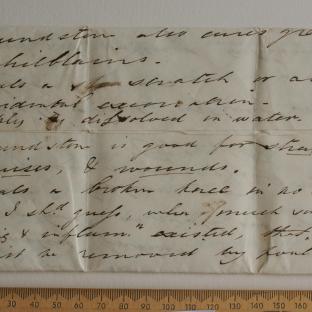 undston also cures gre
hilblains.
als a scratch or a
idental excoriation
ply is dissolved in water.
undston is good for stra
uises, & wounds.
als a broken knee in as
I shd guess, when much sw
& inflamn existed, that
st be removed by foul
10 20 30 40 50 60 70 80 90 100 110 120 130 140 150 160 170